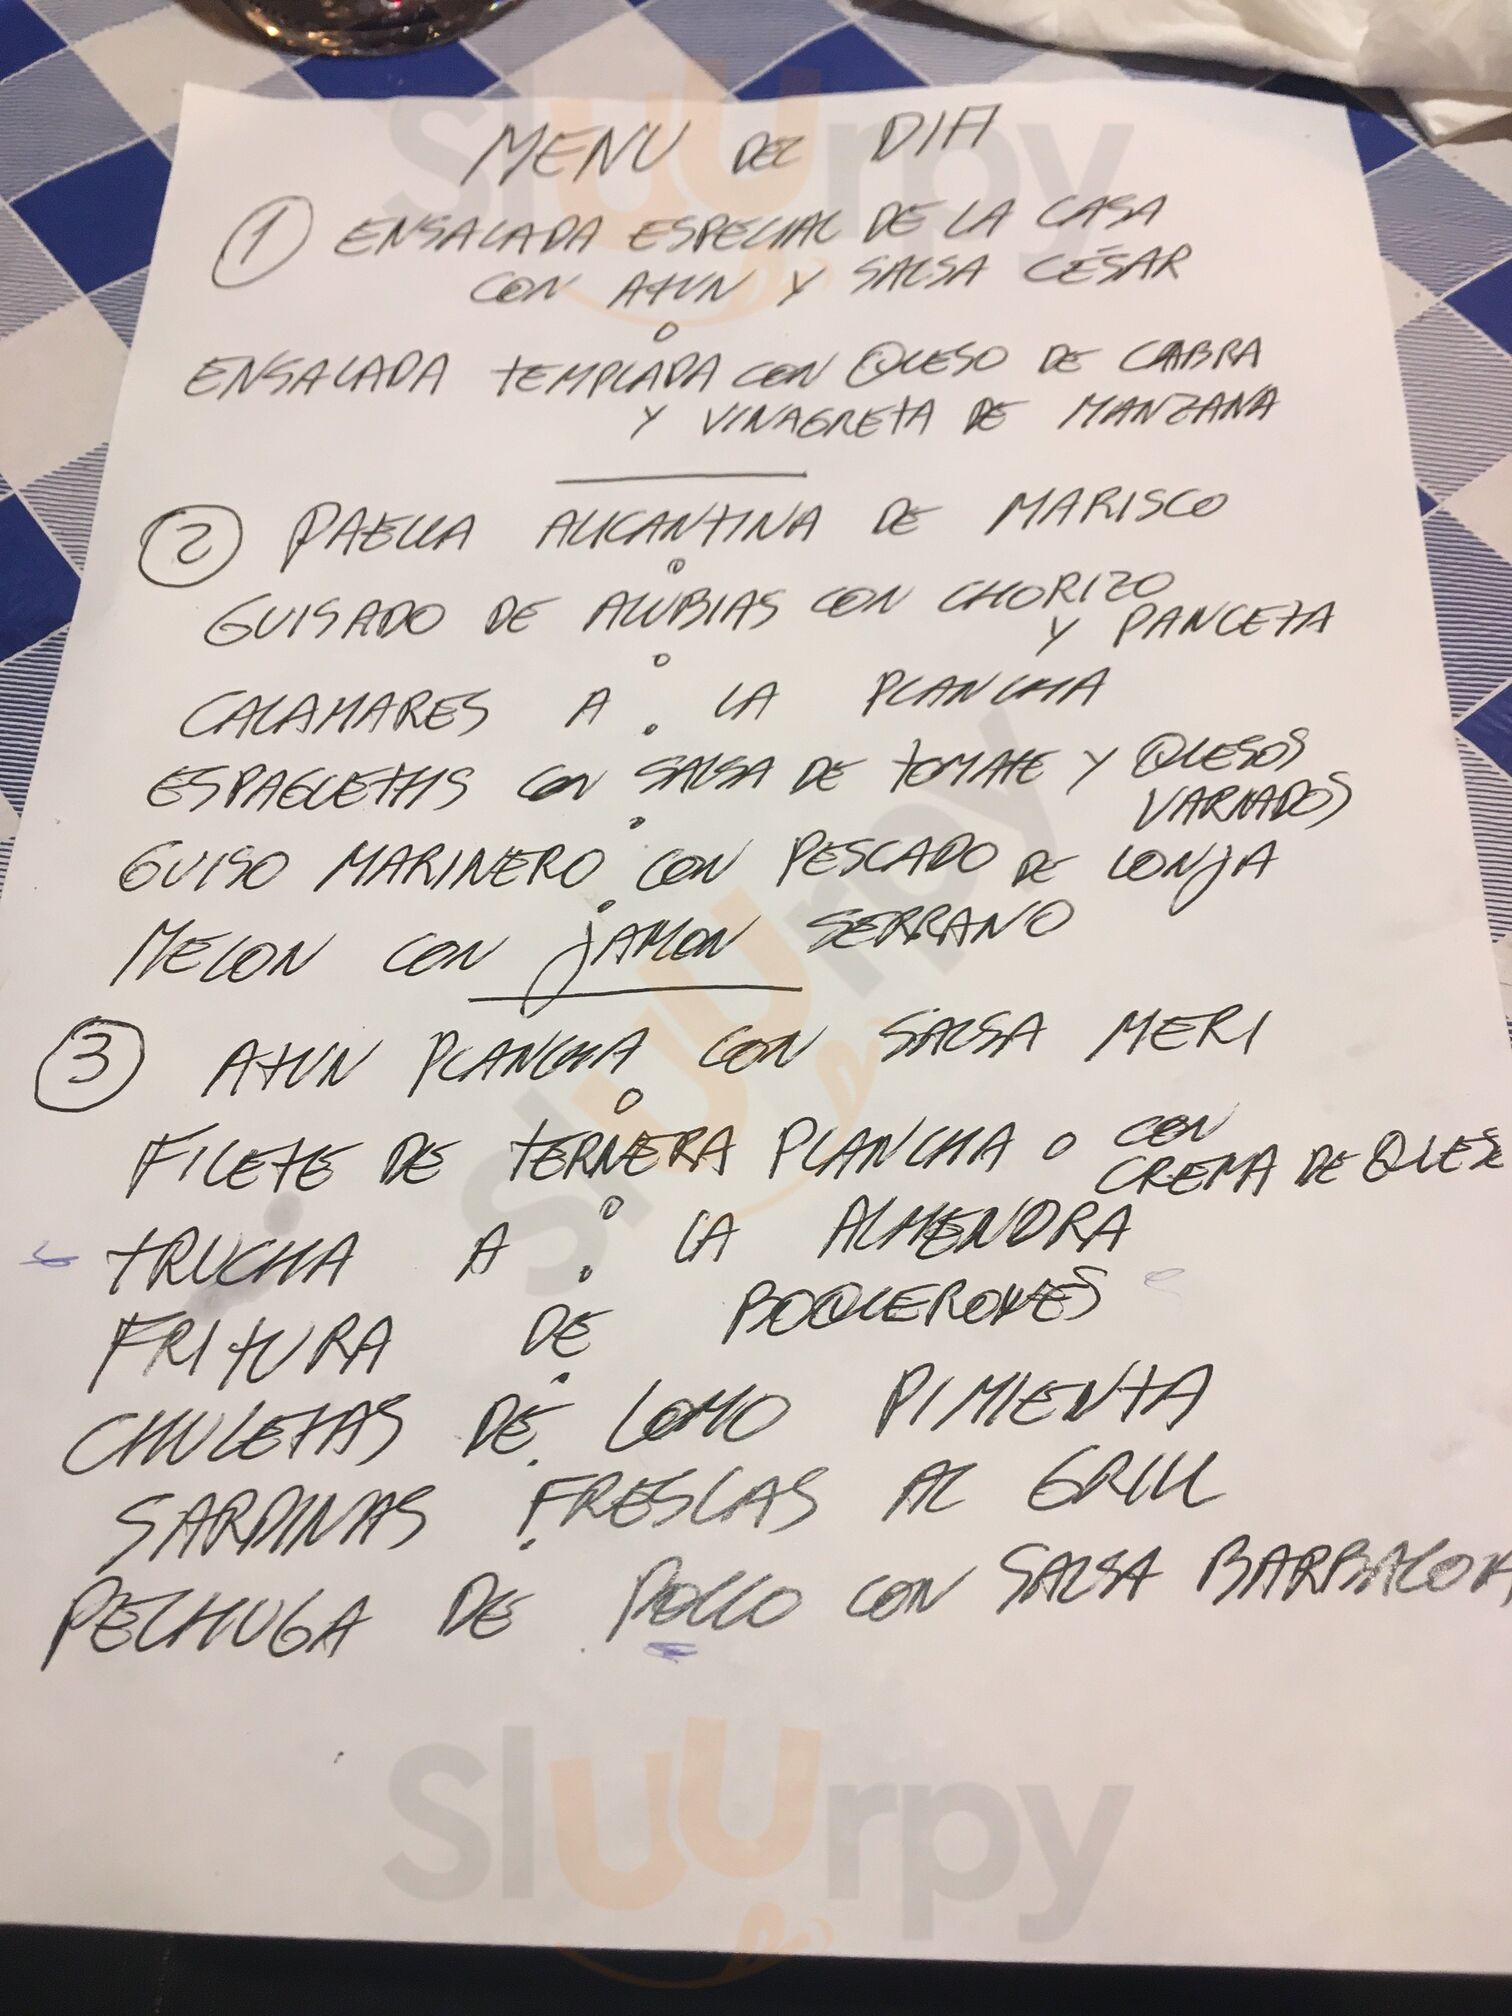 MENU DEL DIA
① ENSALADA ESPECIAL DE LA CASA
CON ATUN Y SALSA CÉSAR
O
ENSALADA TEMPLADA CON QUESO DE CABRA
Y VINAGRETA DE MANZANA
② PAELLA ALICANTINA DE MARISCO
O
GUISADO DE ALUBIAS CON CHORIZO
Y PANCETA
O
CALAMARES A LA PLANCHA
ESPAGUETHIS CON SALSA DE TOMATE Y QUESOS
VARIADOS
GUISO MARINERO CON PESCADO DE LONJA
MELON CON JAMON SERRANO
③ ATUN PLANCHA CON SALSA MERI
O
FILETE DE TERNERA PLANCHA O CON
CREMA DE QUESO
O
TRUCHA A LA ALMENDRA
FRITURA DE BOQUERONES
CHULETAS DE LOMO PIMIENTA
SARDINAS FRESCAS AL GRILL
PECHUGA DE POLLO CON SALSA BARBACOA
Sluurpy
Sluurpy
Sluurpy